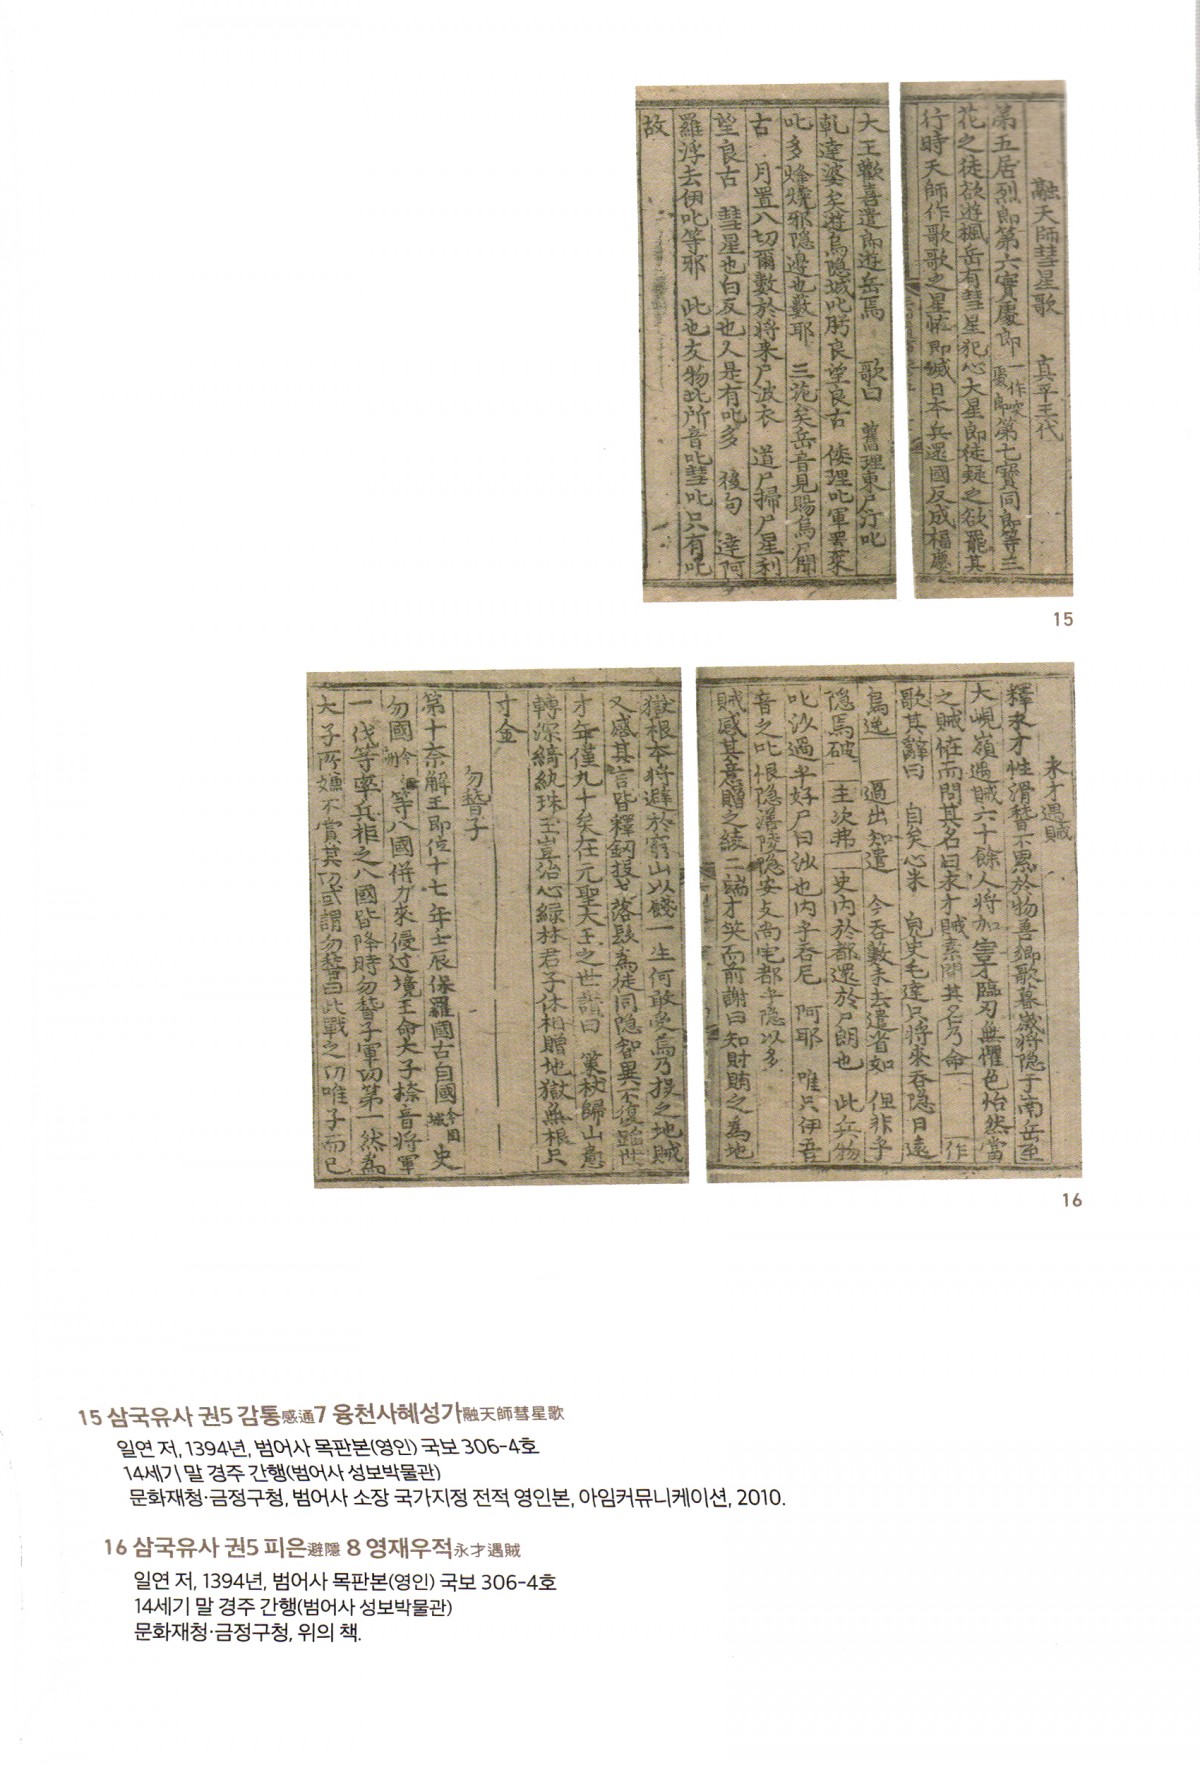 融天師彗星歌 真平王代
第五居烈郎第六實處郎一作突處郎第七寶同郎等三
花之徒欲遊楓岳有彗星犯心大星郎徒疑之欲罷其
行時天師作歌歌之星恠即滅日本兵還國反成福慶
大王歡喜遣郎遊岳焉 歌曰 舊理東尸汀叱
乾達婆矣遊烏隱城叱肹良望良古 倭理叱軍置來
叱多烽燒邪隱邊也藪耶 三花矣岳音見賜烏尸聞
古 月置八切爾數於將來尸波衣 道尸掃尸星利
望良古 彗星也白反也人是有叱多 後句 達阿
羅浮去伊叱等邪 此也友物北所音叱彗叱只有叱
故
15
永才遇賊
釋永才性滑稽不累於物善鄉歌暮歲將隱于南岳至
大峴嶺遇賊六十餘人將加害才臨刃無懼色怡然當
之賊恠而問其名曰永才賊素聞其名乃命 作
歌其辭曰 自矣心米 皃史毛達只將來吞隱日遠
鳥逸 過出知遣 今吞藪未去遣省如 但非乎
隱焉破 主次弗 史內於都還於尸朗也 此兵物
叱沙過乎好尸曰沙也內乎吞尼 阿耶 唯只伊吾
音之叱恨隱潽陵隱安攴尙宅都乎隱以多
賊感其意贈之綾二端才笑而前謝曰知財賄之為地
獄根本將避於窮山以餞一生何敢受焉乃投之地賊
又感其言皆釋釰投戈落髮為徒同隱智異不復蹈世
才年僅九十矣在元聖大王之世讚曰 策杖歸山意
轉深綺紈珠玉豈治心綠林君子休相贈地獄無根只
寸金
勿稽子
第十奈解王即位十七年壬辰保羅國古自國今固城史
勿國今泗州等八國併力來侵邊境王命太子捺音將軍
一伐等率兵拒之八國皆降時勿稽子軍功第一然為
大子所嫌不賞其功或謂勿稽曰此戰之功唯子而已
16
15 삼국유사 권5 감통感通7 융천사혜성가融天師彗星歌
일연 저, 1394년, 범어사 목판본(영인) 국보 306-4호
14세기 말 경주 간행(범어사 성보박물관)
문화재청·금정구청, 범어사 소장 국가지정 전적 영인본, 아임커뮤니케이션, 2010.
16 삼국유사 권5 피은避隱 8 영재우적永才遇賊
일연 저, 1394년, 범어사 목판본(영인) 국보 306-4호
14세기 말 경주 간행(범어사 성보박물관)
문화재청·금정구청, 위의 책.